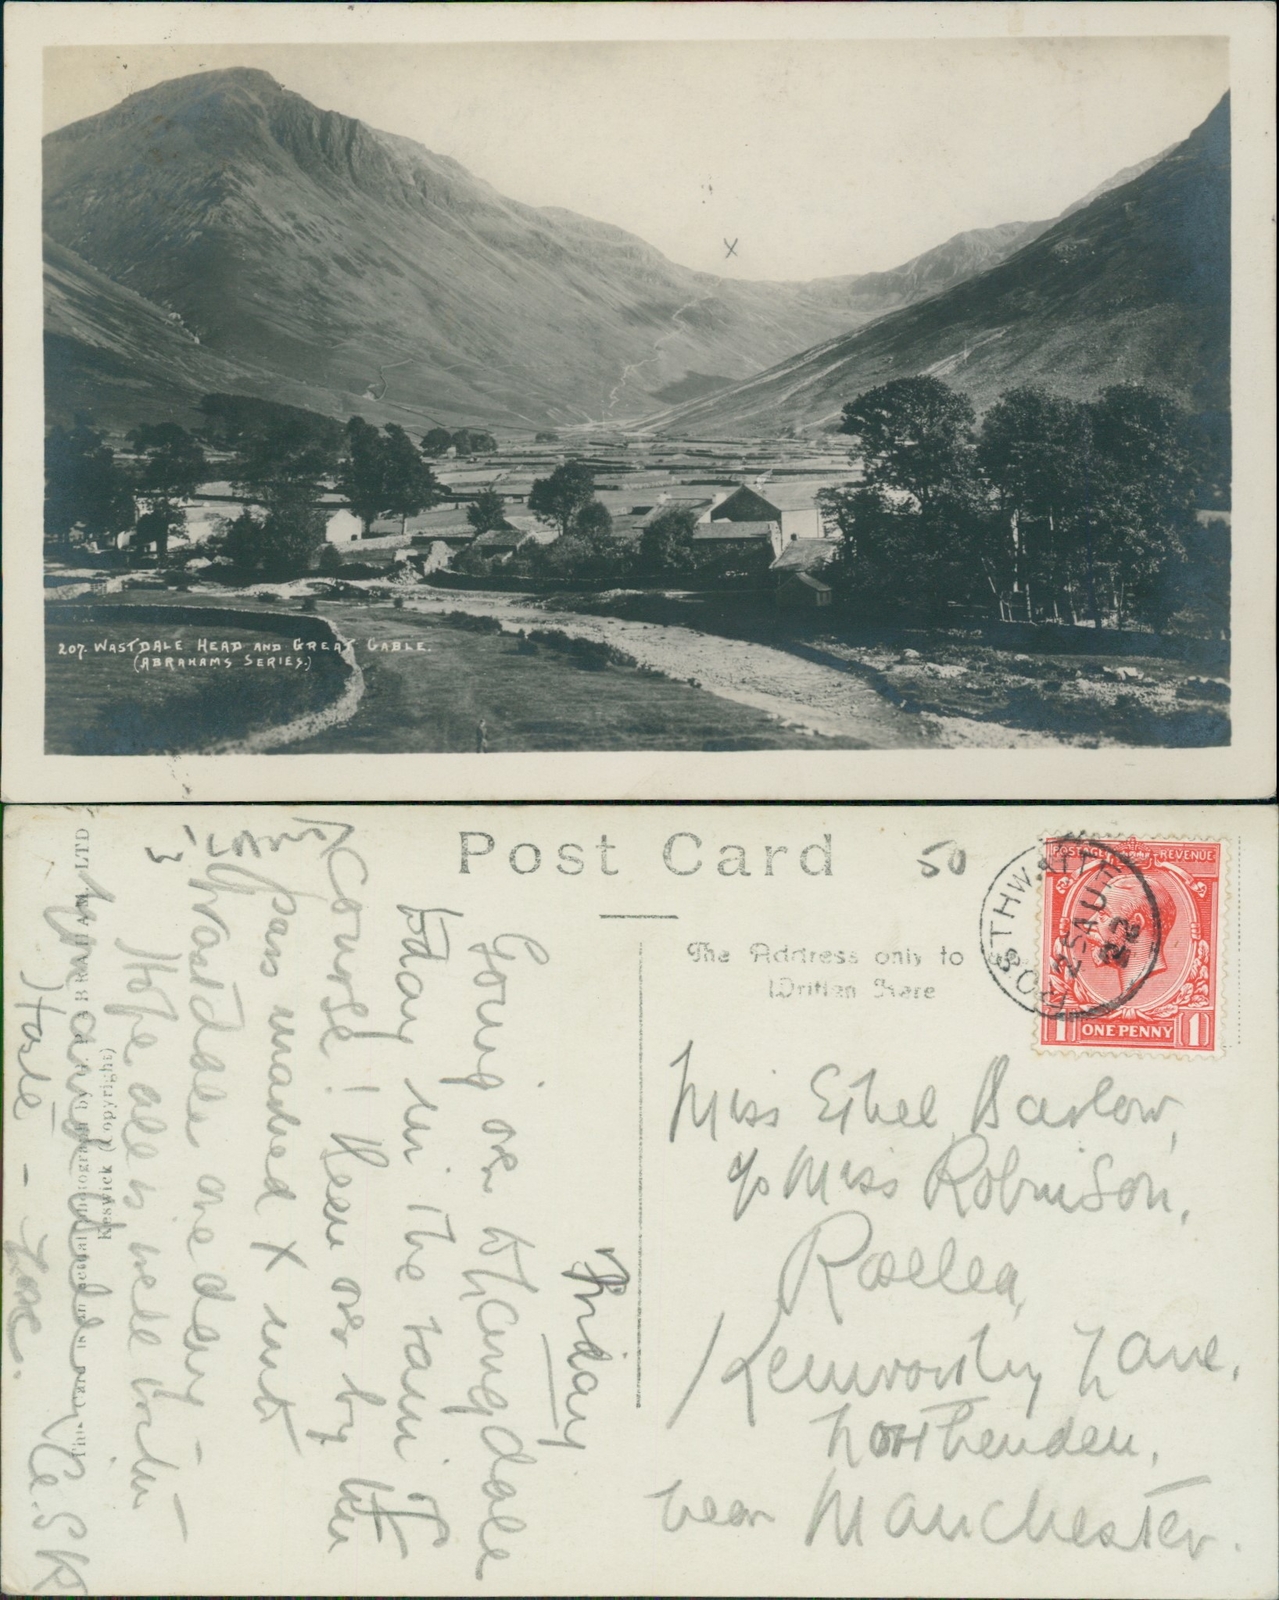 X
207. WASTDALE HEAD AND GREAT GABLE.
(ABRAHAMS SERIES.)
Post Card
50
The Address only to be
Written Here
POSTAGE REVENUE
1 ONE PENNY 1
ROSTHWAITE
25 AU
22
Miss Ethel Barlow,
c/o Miss Robinson,
Roelea,
Kenworthy Lane,
Northenden,
near Manchester.
Friday
Going over to Langdale
today in the rain of
course! Been over by the
pass marked X into
Wastdale one day
Hope all is well with
you and
Haste
This Card is an actual photograph by G. P. ABRAHAM, LTD
Keswick (Copyright)